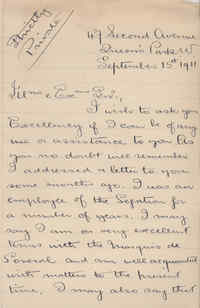 Strictly
Private
47 Second Avenue
Queen's Park W
September 15th 1911
Exmo Snr.,
I wish to ask you
Excellency if I can be of any
use or assistance to you As
you no doubt well remember
I addressed a letter to you
some months ago. I was an
employee of the Legation for
a number of years. I may
say I am on very excellent
terms with the Marquis de
Soveral and am well acquainted
with matters to the present
time, I may also say that